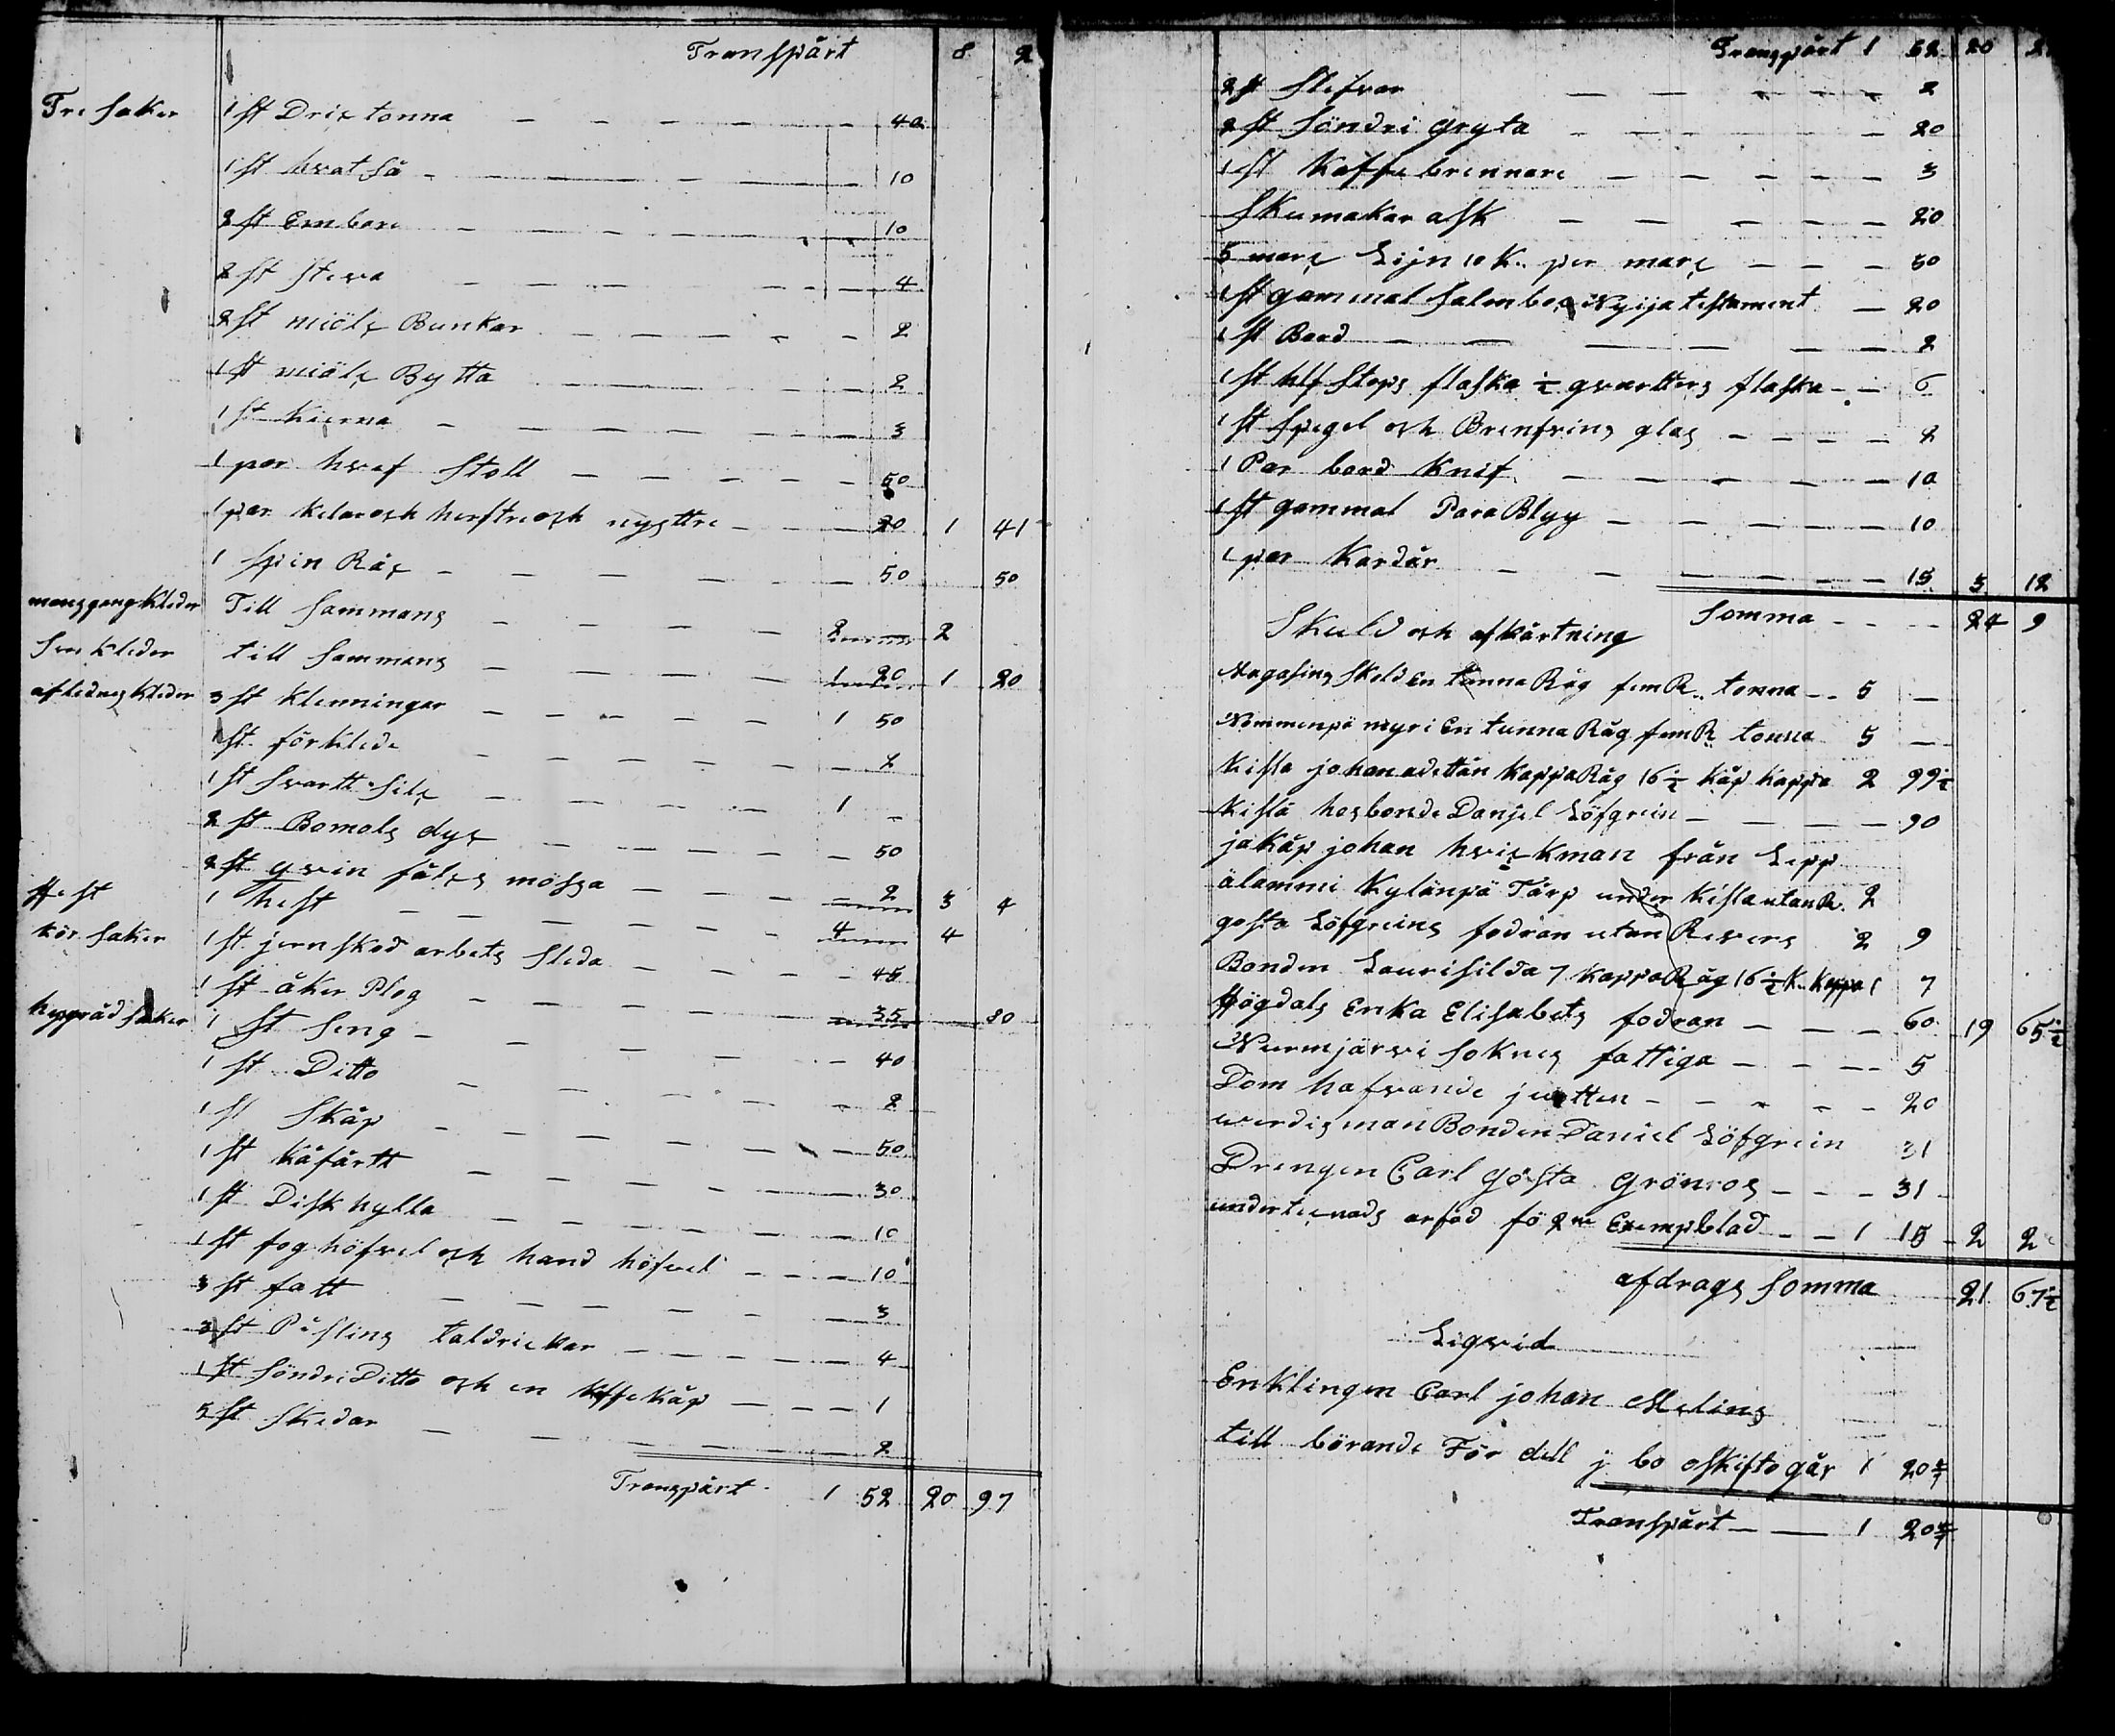 Transpårt 8 2
Tre saker 1 st Dric tonna — — — — — 40
1 st hvat så — — — — — 10
2 st Embare — — — — — 10
2 st steva — — — — — 4
2 st miöls Bunkar — — — — — 2
1 st miöls Bytta — — — — — 2
1 st Kierna — — — — — 3
1 par hvef Stoll — — — — — 50
1 par kelar osk herstre osk nysttre — — — 20 1 41
1 spin Råk — — — — — 50 50
mansgang Kleder Till sammans — — — — 2 — 2
Sven Kleder till sammans — — — — 1 20 1 20
aflednes Kleder 3 st Klenningar — — — — — 1 50
1 st förklede — — — — — 2
1 st Svartt silk — — — — 1 —
2 st Bomols dyk — — — — — 50
2 st qvin fålks mössa — — — — 2 3 4
Hest 1 hest — — — — — 4 — 4
kör saker 1 st jernskod arbets sleda — — — — 45
1 st åker Plog — — — — — 35 80
hyggråd saker 1 st seng — — — — — 40
1 st Ditto — — — — — 2
1 st Skåp — — — — — 50
1 st Kåfårtt — — — — — 30
1 st Disk hylla — — — — — 10
1 st foghöfvel osk hand höfvel — — — 10
3 st fatt — — — — — 3
3 st Påsling taldrickar — — — — — 4
1 st söndri Ditto osk en Kaffe kåp — — — 1
5 st Skedar — — — — — 2
Transpårt 1 52 20 97
Transpårt 1 52 20
2 st Slefvar — — — — — 2
2 st söndri gryta — — — — — 20
1 st Kaffe brennare — — — — — 3
Skumakar ask — — — — — 20
5 mark Lijn 10 K. per mark — — — 50
1 st gammal salmbok Nyija testament — 20
1 st Bord — — — — — 2
1 st hlf Stops flaska ½ qvartters flaska — — 6
1 st Spegel osk Brenfvins glas — — — — 2
1 Par bord Knif — — — — — 10
1 st gammal ParaBlyy — — — — — 10
1 par Kardår — — — — — 15 3 12
Somma — — — 24 9
Skuld osk afkårtning
Magasins Skuld En tunna Råg fem R. tonna — — 5 —
Nommenpä myri En tunna Råg fem R. tonna 5 —
Kissa johan adettån kappa Råg 16½ kåp kappa 2 99½
Kissa hosbonde Danjel Löfgrein — — — — 90
jakåp johan hvickman från Lepp
älammi Kylänpä Tårp under Kissa utan R. 2
gosta Löfgreins fodran utan Revers 2 9
Bonden Laurisilda 7 kappa Råg 16½ K. kappa 1 7
Högdals Enka Elisabets fodran — — — 60 19 65½
Nurmjärvi soknes fattiga — — — 5
Dom hafvande jwtten — — — — — 20
werdis man Bonden Daniel Löfgrein 31
Drengen Carl gösta grönros — — — 31
undertienads arfod fö 2ne Exempblad — — 1 15 2 2
afdrags somma 21 67½
Liqvid
Enklingen Carl johan Meling
till börande För dell j bo oskifto går 1 20
Transpårt — — 1 20